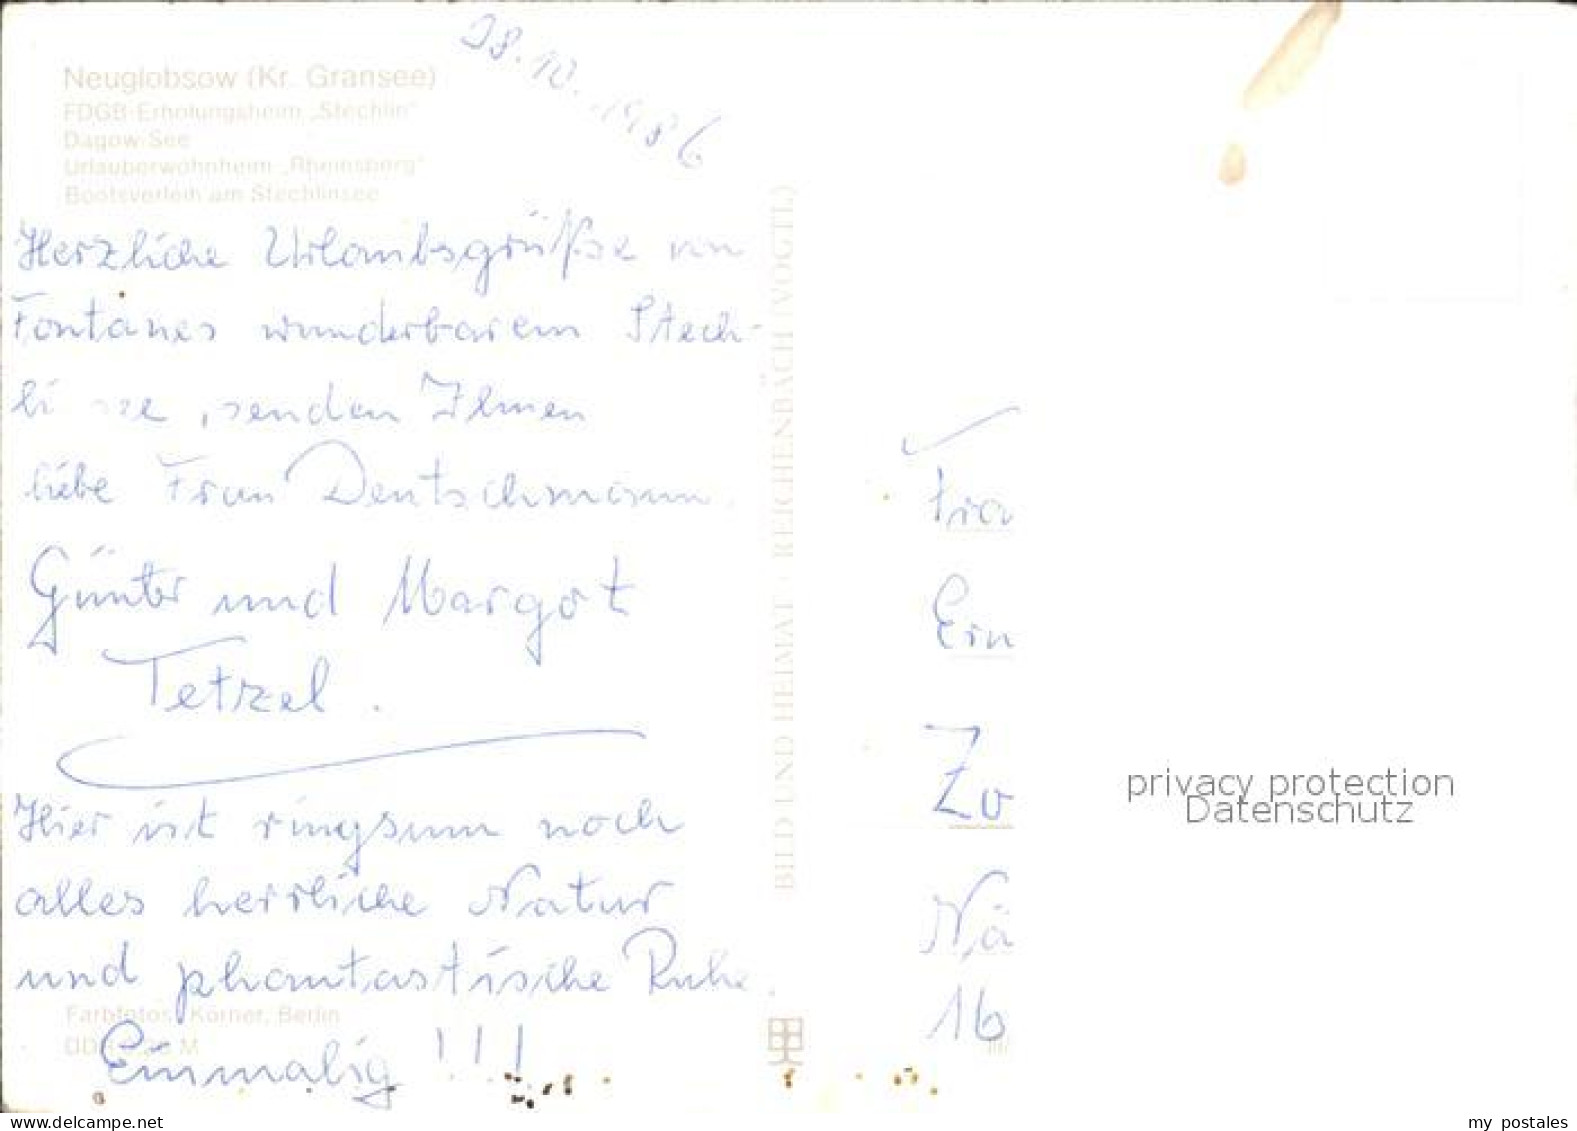 Neuglobsow (Kr. Gransee)
FDGB-Erholungsheim „Stechlin“
Dagow-See
Urlauberwohnheim „Rheinsberg“
Bootsverleih am Stechlinsee
10. 1986
Herzliche Urlaubsgrüße von
Fontanes wunderbarem Stech-
li see, senden Ihnen
liebe Frau Deutschmann.
Günter und Margot
Tetzel.
Hier ist ringsum noch
alles herrliche Natur
und phantastische Ruhe.
Einmalig !!!
Farbfotos: Körner, Berlin
DDR M
BILD UND HEIMAT · REICHENBACH (VOGTL)
Fra
Ern
Zw
Nä
16
privacy protection
Datenschutz
www.delcampe.net
my_postales